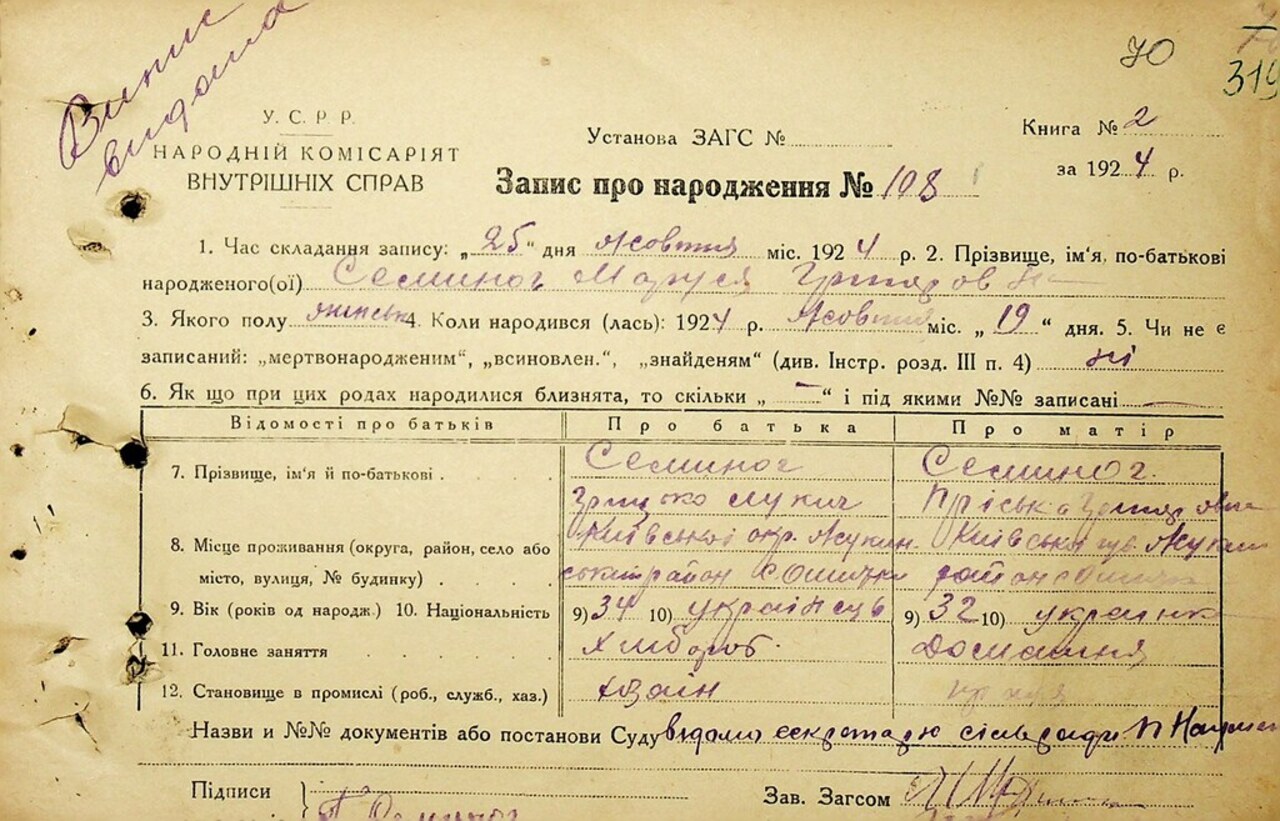 Випис
видана
70
319
У. С. Р. Р.
НАРОДНІЙ КОМІСАРІЯТ
ВНУТРІШНІХ СПРАВ
Установа ЗАГС №
Книга № 2
за 1924 р.
Запис про народження № 108
1. Час складання запису: „25“ дня жовтня міс. 1924 р. 2. Прізвище, ім'я, по-батькові
народженого(ої) Семиног Маруся
3. Якого полу жіноч 4. Коли народився (лась): 1924 р. жовтня міс. „19“ дня. 5. Чи не є
записаний: „мертвонародженим“, „всиновлен.“, „знайденям“ (див. Інстр. розд. III п. 4) ні
6. Як що при цих родах народилися близнята, то скільки „—“ і під якими №№ записані —
Відомості про батьків Про батька Про матір
7. Прізвище, ім'я й по-батькові Семиног Семиног.
Грицько Лукич Пріська
8. Місце проживання (округа, район, село або Київської окр. Жукин Київської
місто, вулиця, № будинку) ський район с Ошитки район с Ошитки
9. Вік (років од народж.) 10. Національність 9) 34 10) українець 9) 32 10) українка
11. Головне заняття Хлібороб. Домашня
12. Становище в промислі (роб., служб., хаз.) хазаїн праця
Назви и №№ документів або постанови Суду відома секретарю сільради
Підписи
Зав. Загсом
Семиног